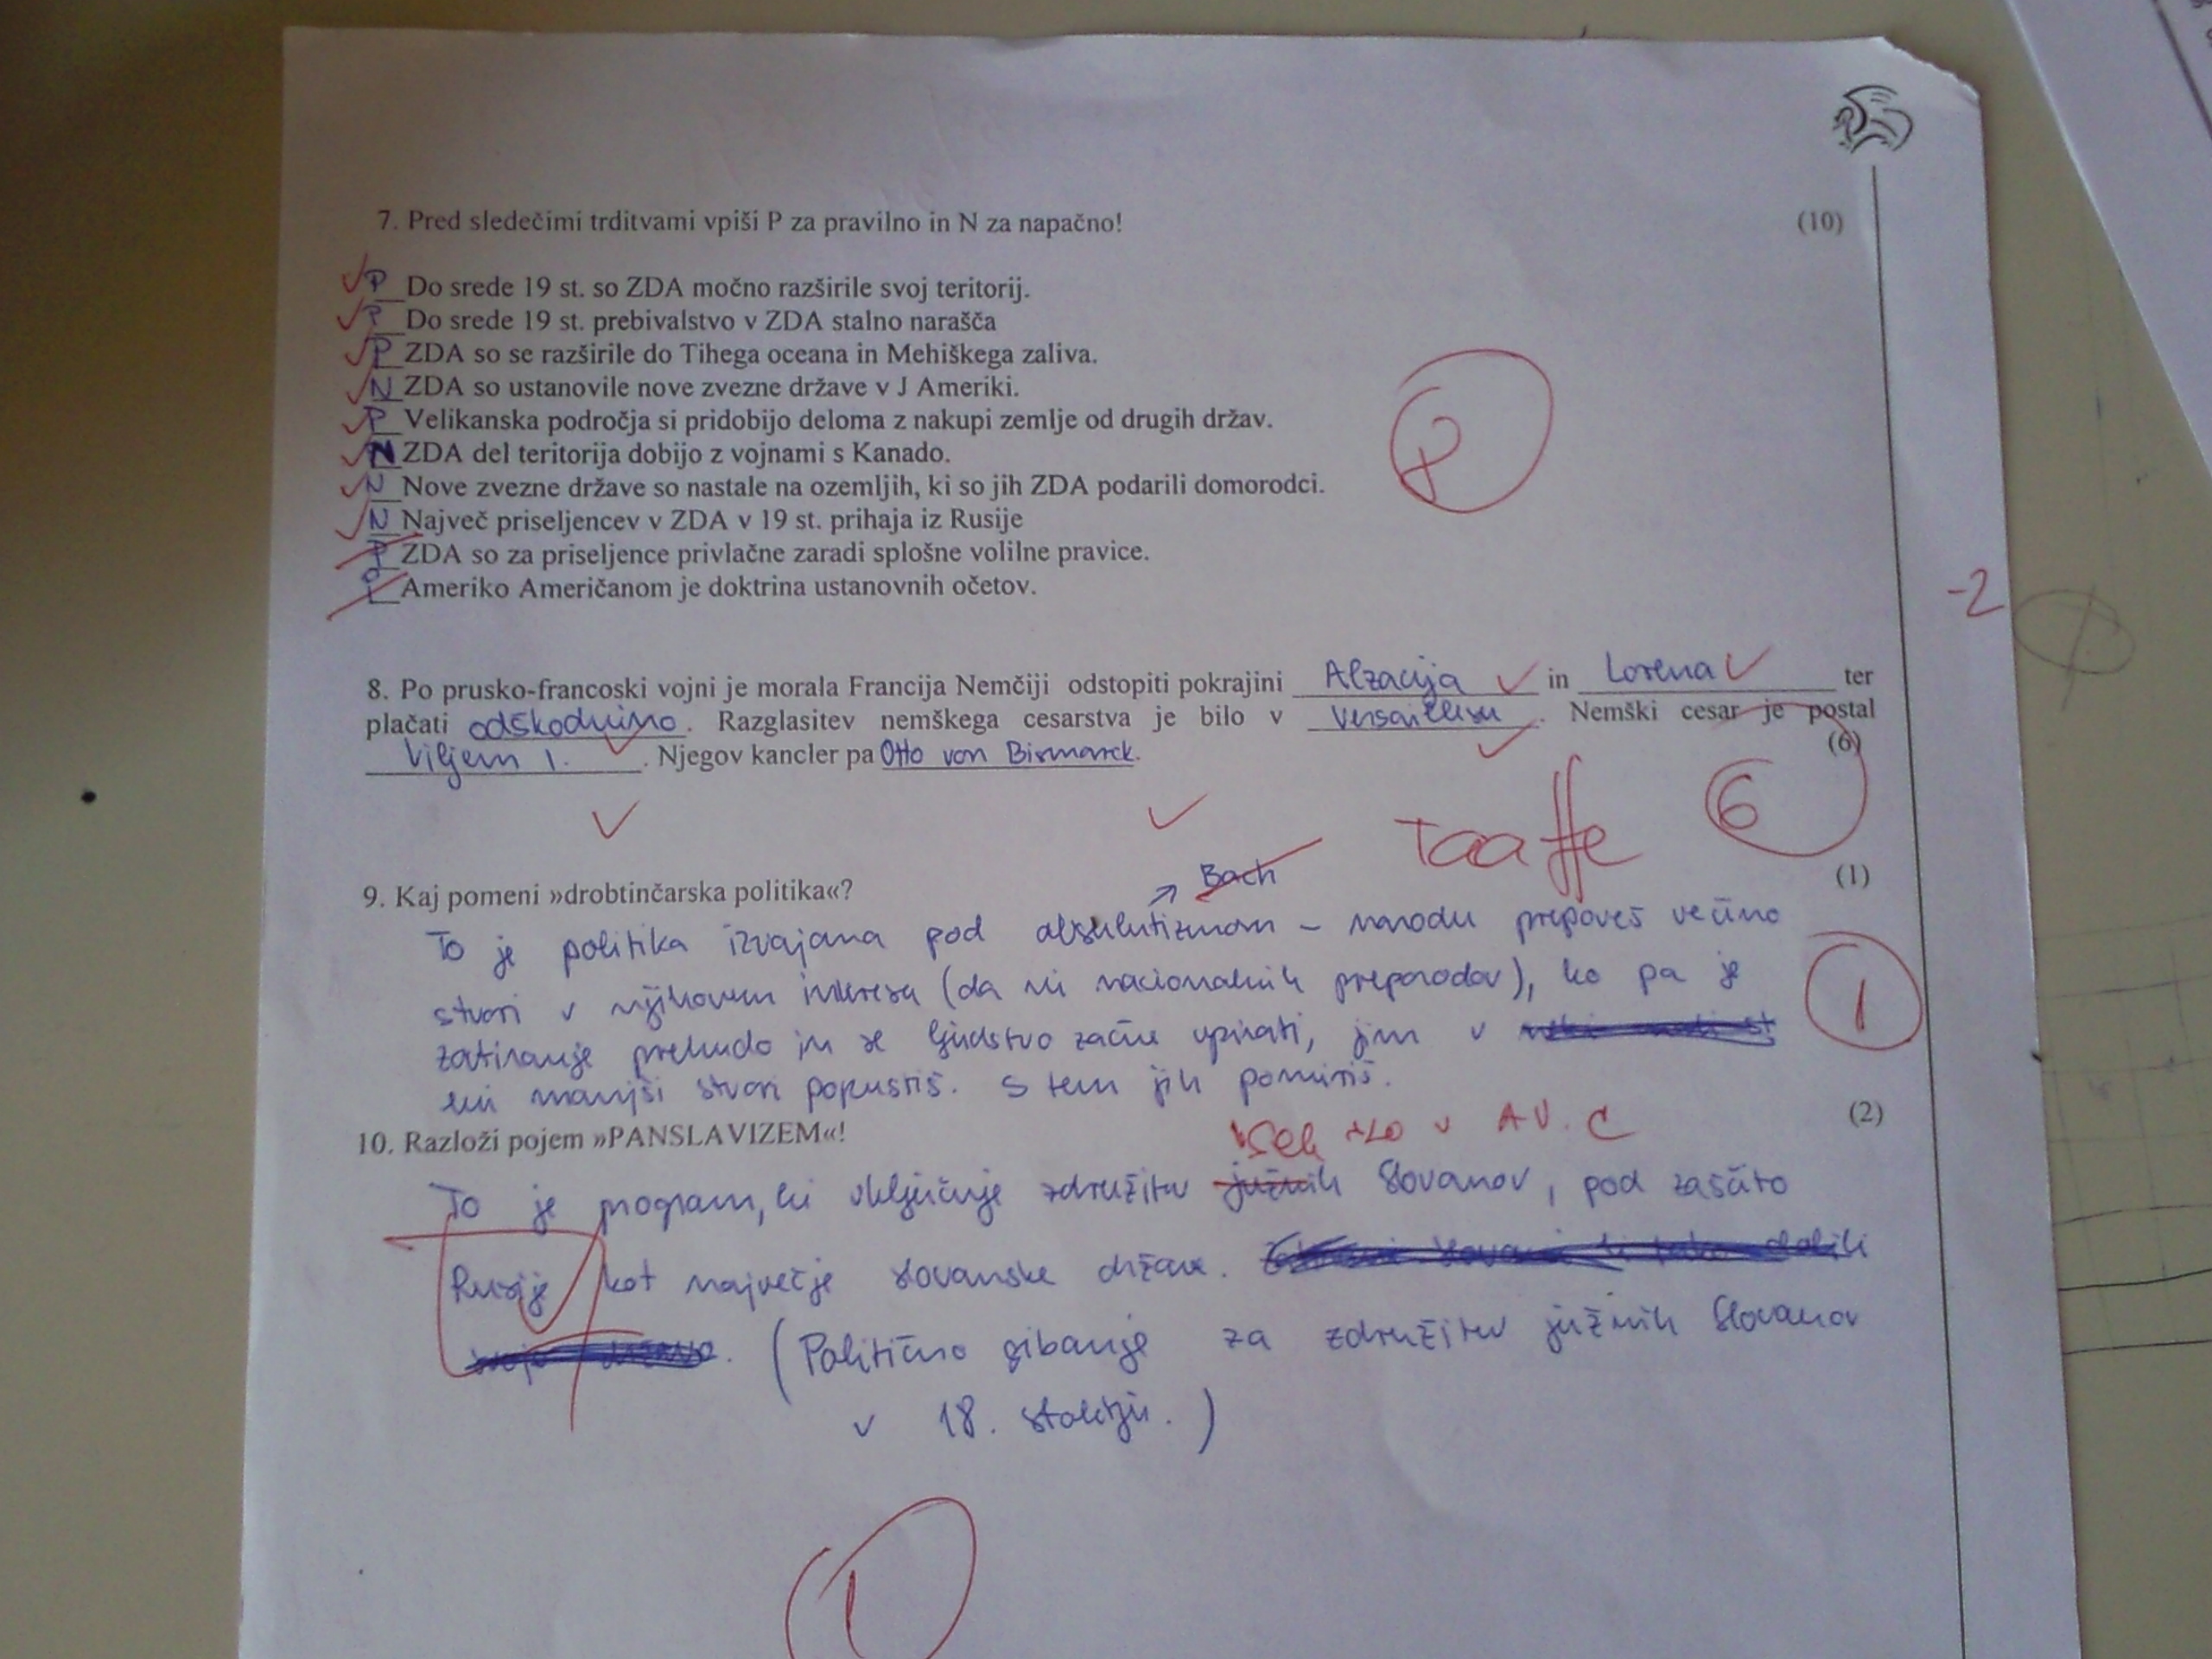 7. Pred sledečimi trditvami vpiši P za pravilno in N za napačno! (10)
P Do srede 19 st. so ZDA močno razširile svoj teritorij.
P Do srede 19 st. prebivalstvo v ZDA stalno narašča
P ZDA so se razširile do Tihega oceana in Mehiškega zaliva.
N ZDA so ustanovile nove zvezne države v J Ameriki.
P Velikanska področja si pridobijo deloma z nakupi zemlje od drugih držav.
N ZDA del teritorija dobijo z vojnami s Kanado.
N Nove zvezne države so nastale na ozemljih, ki so jih ZDA podarili domorodci.
N Največ priseljencev v ZDA v 19 st. prihaja iz Rusije
P ZDA so za priseljence privlačne zaradi splošne volilne pravice.
Ameriko Američanom je doktrina ustanovnih očetov.
-2
8. Po prusko-francoski vojni je morala Francija Nemčiji odstopiti pokrajini Alzacija in Lorena ter
plačati odškodnino. Razglasitev nemškega cesarstva je bilo v Versaillesu. Nemški cesar je postal
Viljem 1. Njegov kancler pa Otto von Bismarck. (6)
6
Taaffe
Bach
9. Kaj pomeni »drobtinčarska politika«? (1)
To je politika izvajana pod absolutizmom – narodu prepoveš večino
stvari v njihovem interesu (da ni nacionalnih preporodov), ko pa je
zatiranje prehudo in se ljudstvo začne upirati, jim v
eni manjši stvari popustiš. S tem jih pomiriš.
1
10. Razloži pojem »PANSLAVIZEM«! (2)
vseh
To je program, ki vključuje združitev južnih Slovanov, pod zaščito
Rusije kot največje slovanske države.
(Politično gibanje za združitev južnih Slovanov
v 18. stoletju.)
1